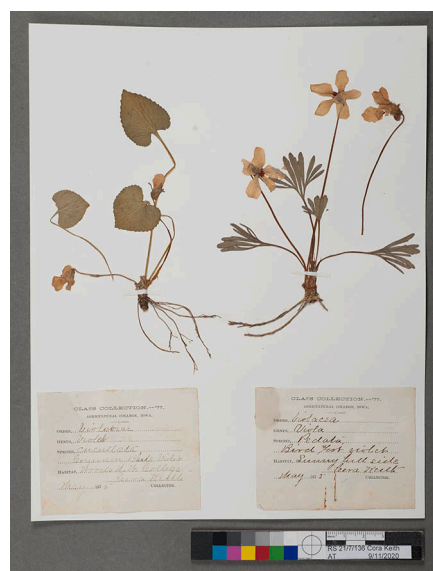 CLASS COLLECTION.—'77.
AGRICULTURAL COLLEGE, IOWA.
ORDER,
GENUS, Viola
SPECIES, cucullata
Common Blue Violet
HABITAT, College
COLLECTOR.
CLASS COLLECTION.—'77.
AGRICULTURAL COLLEGE, IOWA.
ORDER, Violacea
GENUS, Viola
SPECIES, Pedata,
Bird Foot violet
HABITAT, Sunny hill side
Cora Keith
May COLLECTOR.
RS 21/7/136 Cora Keith
AT 9/11/2020